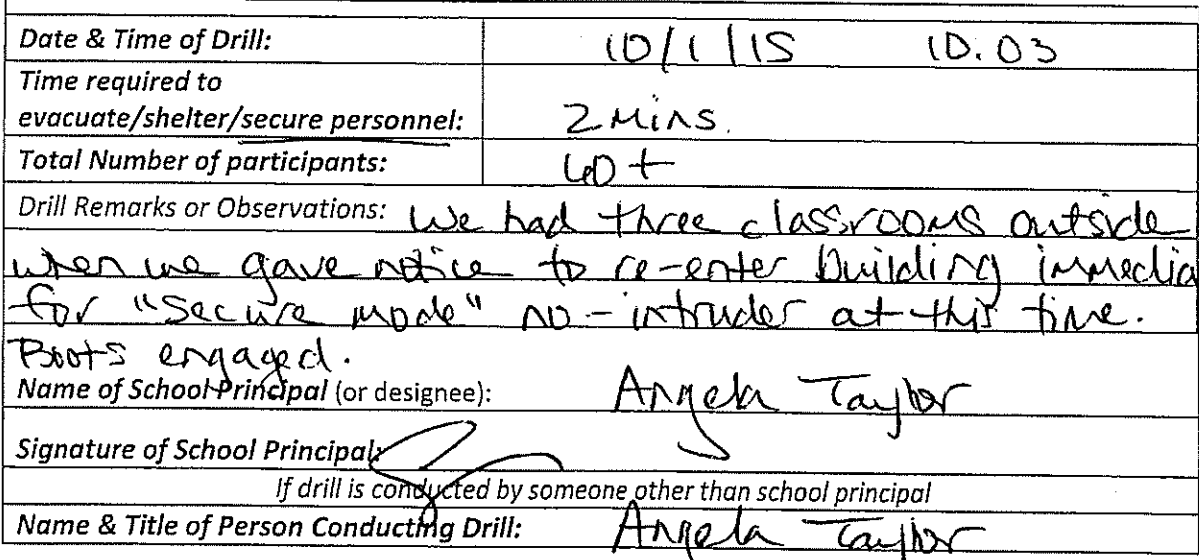 Date & Time of Drill: 10/1/15 10:03
Time required to
evacuate/shelter/secure personnel: 2 Mins.
Total Number of participants: 60+
Drill Remarks or Observations: We had three classrooms outside
when we gave notice to re-enter building immedia
for "Secure mode" no-intruder at this time.
Boots engaged.
Name of School Principal (or designee): Angela Taylor
Signature of School Principal:
If drill is conducted by someone other than school principal
Name & Title of Person Conducting Drill: Angela Taylor